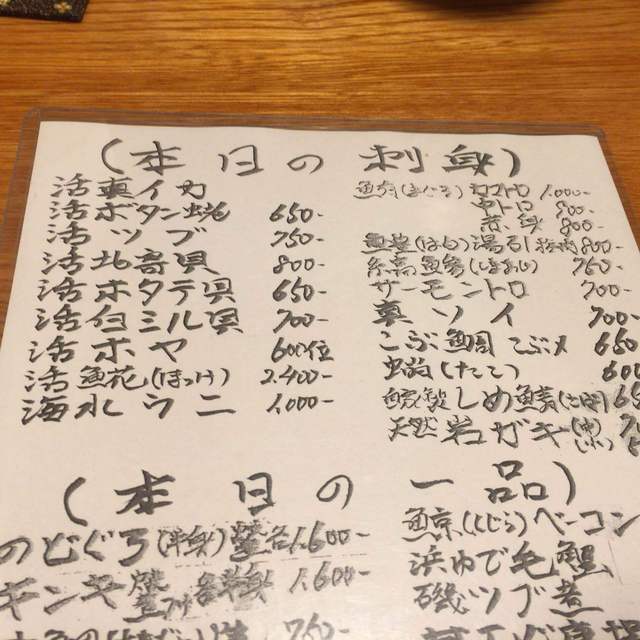 (本日の刺身)
活真イカ
活ボタン蛯 650-
活ツブ 750-
活北寄貝 800-
活ホタテ貝 650-
活白ミル貝 700-
活ホヤ 600位
活𩸽(ほっけ) 2.400-
海水ウニ 1.000-
鮪(まぐろ) 大トロ 1.000-
中トロ 800-
赤身 800-
湯引 800-
縞鰺(しまあじ) 760-
サーモントロ 700-
真ソイ 700-
こぶ鯛 こぶ〆 650
蛸(たこ) 600
自家製 しめ鯖
天然 岩ガキ
(本日の一品)
のどぐろ(半身) 1.600-
キンキ 半身 1.600-
760-
鯨(くじら)ベーコン
浜ゆで毛蟹
磯ツブ煮